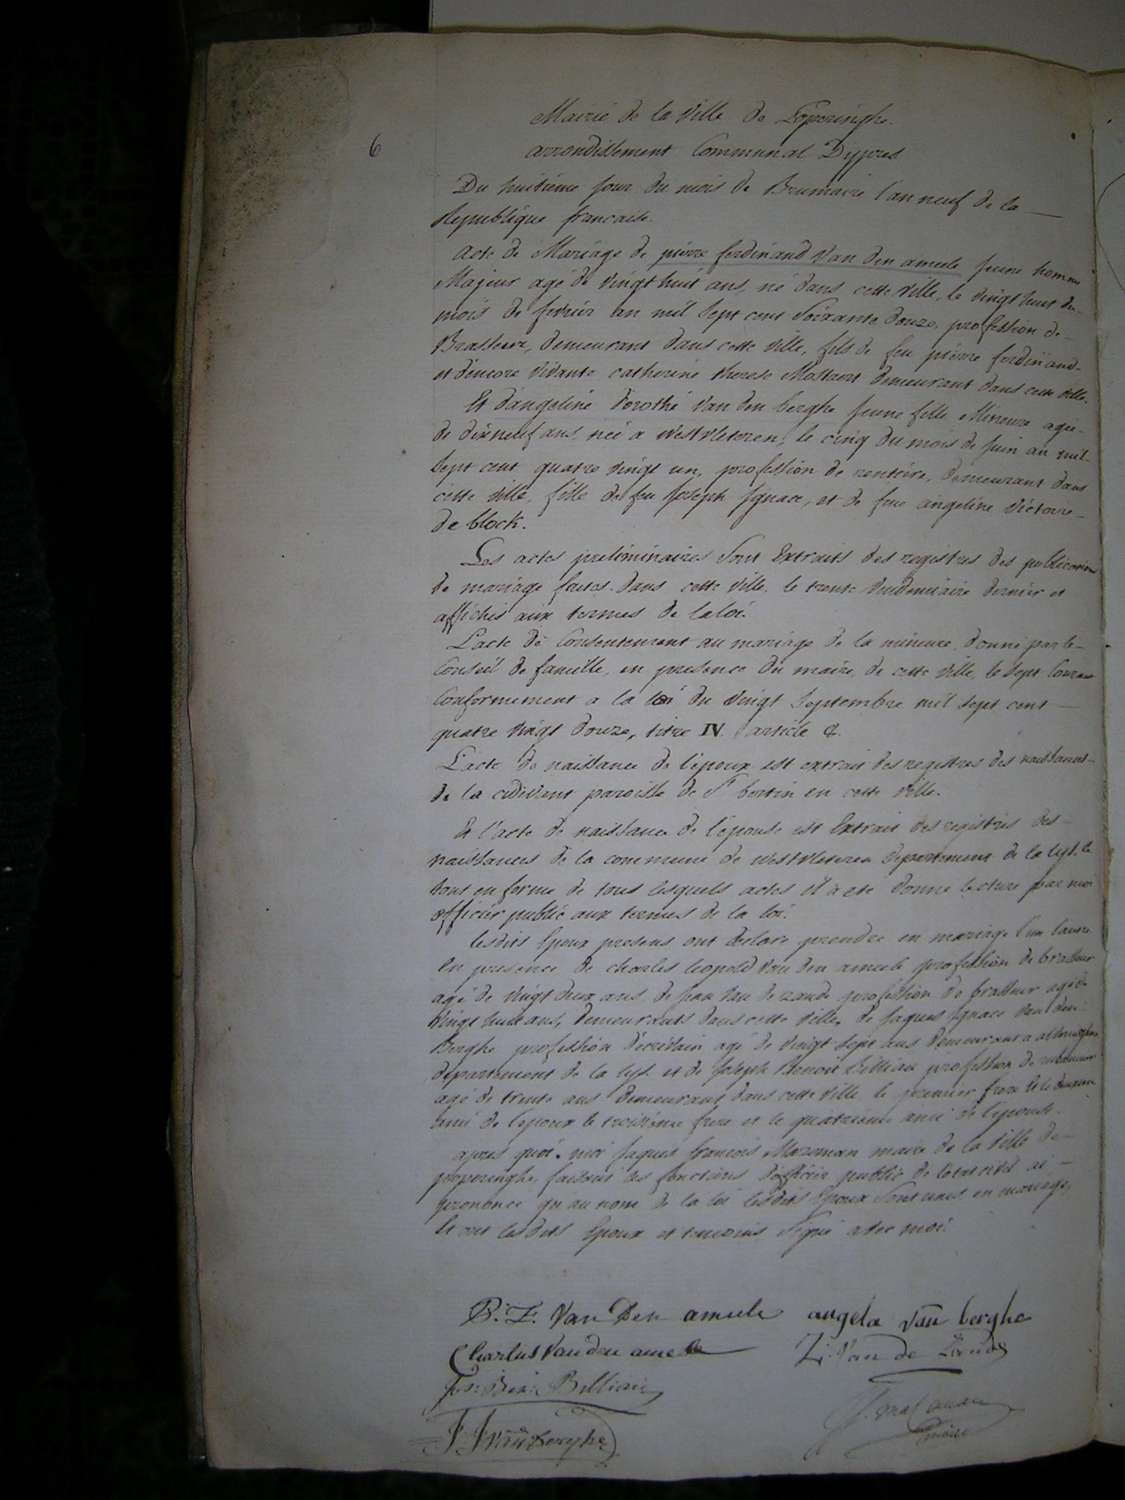 Mairie de la Ville de Poperinghe.
6
arrondissement Communal Dypres
Du huitieme jour du mois de Brumaire l'an neuf de la
Republique francaise.
Acte de Mariage de pierre ferdinand Van den ameele jeune homme
Majeur agé de vingt huit ans, né dans cette ville, le vingt huit du
mois de fevrier an mil sept cent soixante douze, profession de
Brasseur, demeurant dans cette ville, fils de feu pierre ferdinand
et d'encore vivante catherine therese Mostaert demeurant dans cette ville.
Et d'angeline dorothé Van den berghe jeune fille Mineure agée
de dixneuf ans, née a Westvleteren, le cinq du mois de juin an mil
sept cent quatre vingt un, profession de rentiere, demeurant dans
cette ville, fille de feu Joseph Ignace, et de feue angeline victoire
De block.
Les actes preliminaires sont Extraits des registres des publications
de mariage faites dans cette ville, le trente Vendemiaire dernier et
affichés aux termes de la loi.
L'acte de Consentement au mariage de la mineure donné par le
Conseil de famille, en presence du maire de cette ville, le sept Courant
Conformement a la loi du vingt Septembre mil sept cent
quatre vingt douze, titre IV article
L'acte de naissance de l'epoux est extrait des registres des naissances
de la cidevant paroisse de St bertin en cette ville.
Et l'acte de naissance de l'epouse est Extrait des registres des
naissances de la commune de westvleteren departement de la lys, le
tout en forme de tous lesquels actes il a eté donné lecture par moi
officier public aux termes de la loi.
lesdits Epoux presens ont declaré prendre en mariage l'un lautre
En presence de charles leopold Van den ameele profession de brasseur
agé de vingt deux ans, de jean Van de zande profession de brasseur agé de
vingt huit ans, demeurants dans cette ville, de jaques Ignace Van den
Berghe profession d'ecrivain agé de vingt sept ans demeurant a
departement de la lys et de joseph Benoit Billiau profession de
agé de trente ans demeurant dans cette ville le premier frere et le deuxieme
ami de l'epoux le troisieme frere et le quatrieme ami de l'epouse.
après quoi, moi jaques francois Mazeman maire de la ville de
poperinghe faisant les fonctions d'officier public de l'etat civil ai
prononcé qu'au nom de la loi lesdits Epoux sont unis en mariage,
Et ont lesdits Epoux et temoins signé avec moi.
P: F. Van Den ameele angela van berghe
Charles Vanden ameele Van de Zande
Jos: Ben: Billiau
J. J. Van Berghe
maire